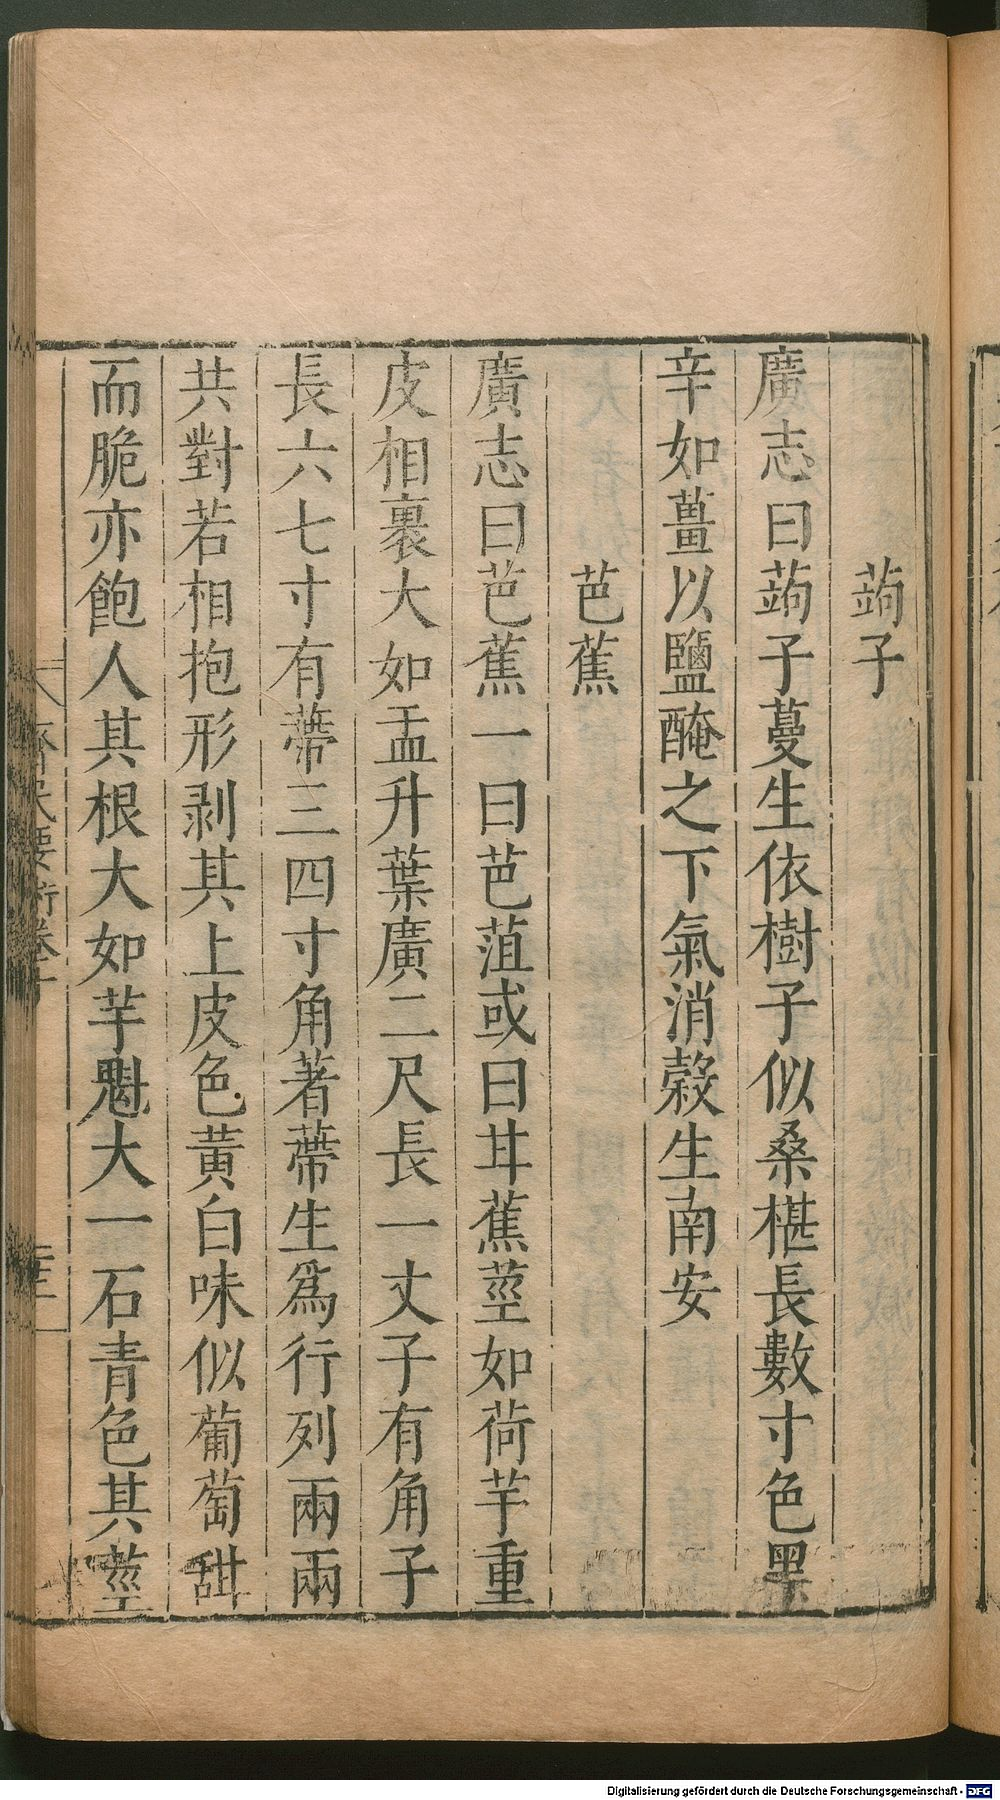 蒟子
廣志曰蒟子蔓生依樹子似桑椹長數寸色黑
辛如薑以鹽醃之下氣消穀生南安
芭蕉
廣志曰芭蕉一曰芭菹或曰甘蕉莖如荷芋重
皮相裹大如盂升葉廣二尺長一丈子有角子
長六七寸有蔕三四寸角著蔕生爲行列兩兩
共對若相抱形剥其上皮色黄白味似葡萄甜
而脆亦飽人其根大如芋魁大一石青色其莖
齊民要術卷十
Digitalisierung gefördert durch die Deutsche Forschungsgemeinschaft - DFG